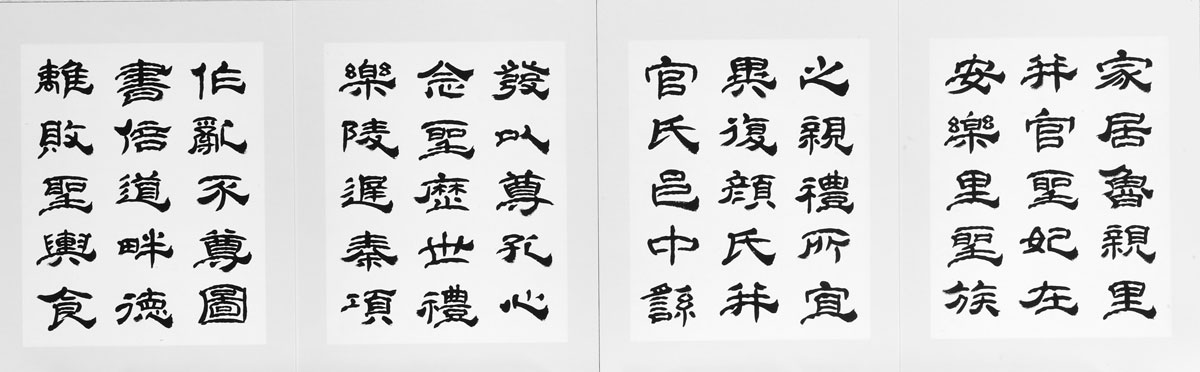 家居魯親里
并官聖妃在
安樂里聖族
之親禮所宜
異復顏氏并
官氏邑中繇
發以尊孔心
念聖歷世禮
樂陵遲秦項
作亂不尊圖
書倍道畔德
離敗聖輿食